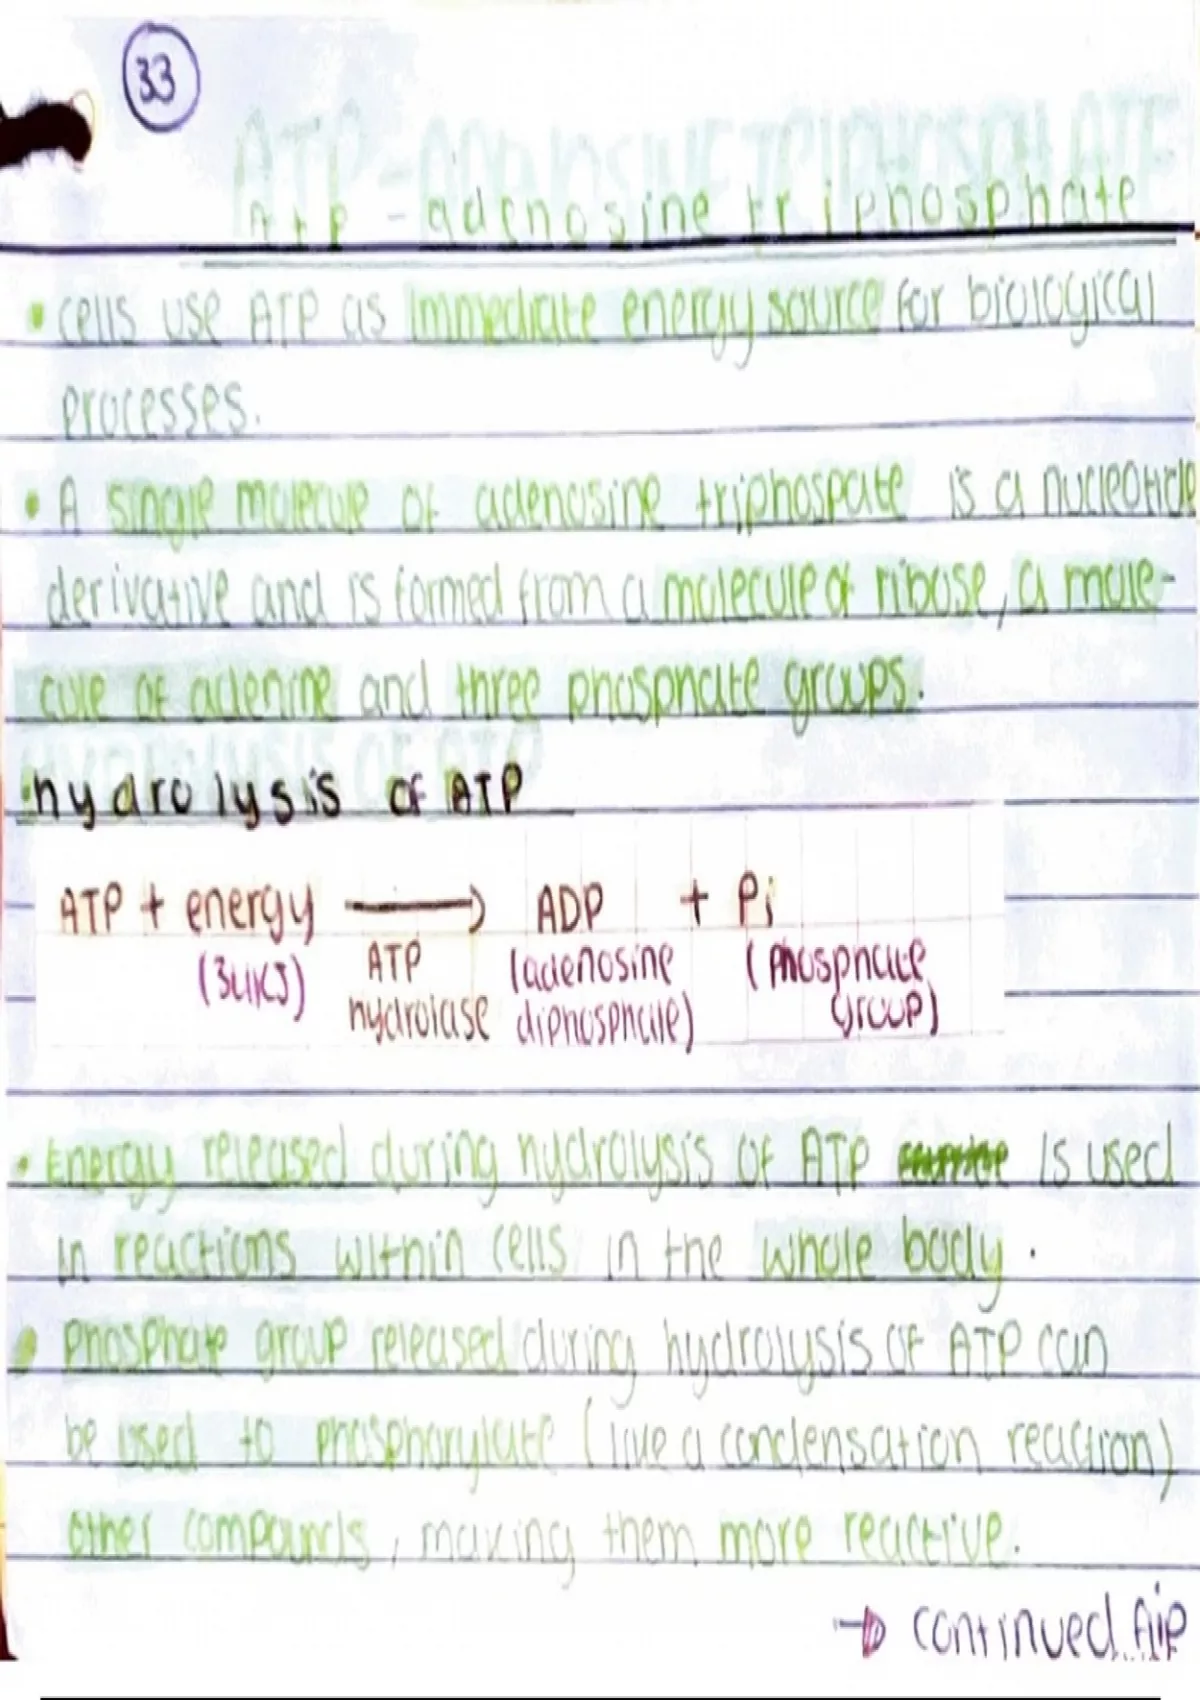 33
ATP - ADENOSINE TRIPHOSPHATE
Atp - adenosine triphosphate
• cells use ATP as immediate energy source for biological
processes.
• A single molecule of adenosine triphospate is a nucleotide
derivative and is formed from a molecule of ribose, a mole-
cule of adenine and three phosphate groups.
HYDROLYSIS OF ATP
hydrolysis of ATP
ATP + energy → ADP + Pi
(34KJ) ATP (adenosine (phosphate
hydrolase diphosphate) group)
• Energy released during hydrolysis of ATP is used
in reactions within cells in the whole body.
• Phosphate group released during hydrolysis of ATP can
be used to phosphorylate (like a condensation reaction)
other compounds, making them more reactive.
→ continued